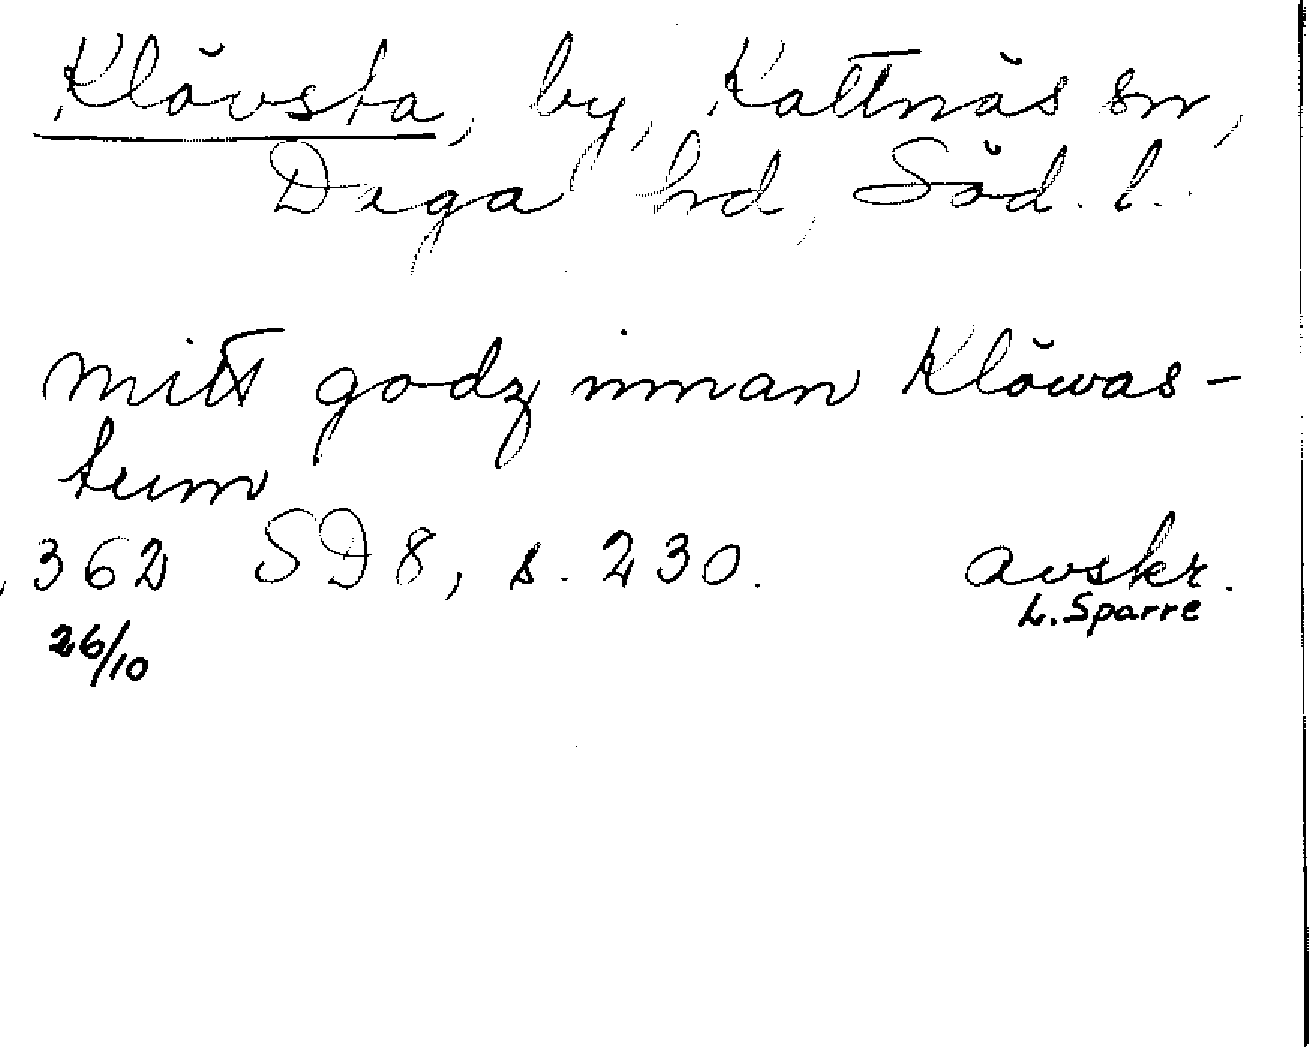 Klövsta, by, Kattnäs sn,
Daga hd, Söd. l.
mitt godz innan Klöwas-
tum
1362 SD 8, s. 230. avskr.
26/10 L. Sparre